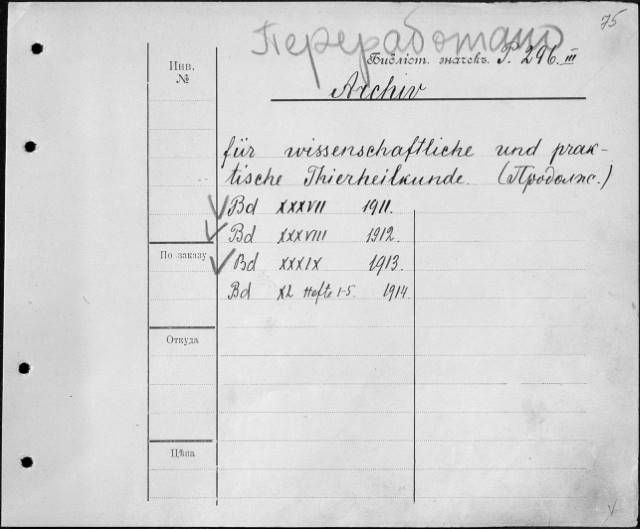 75
Переработано
Инв.
№
Библіот. значекъ. P. 296. III
Archiv
für wissenschaftliche und prak-
tische Thierheilkunde. (Продолж.)
Bd XXXVII 1911.
Bd XXXVIII 1912.
По заказу
Bd XXXIX 1913.
Bd XL Hefte 1-5. 1914.
Откуда
Цѣна